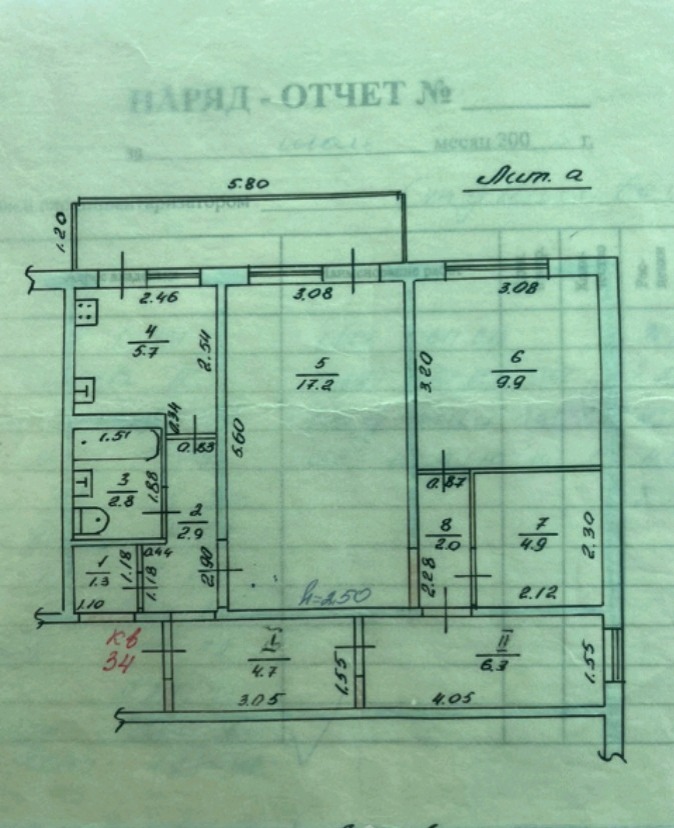 НАРЯД - ОТЧЕТ №
за
месяц 200 г.
Лит. а
5.80
1.20
2.46
3.08
3.08
4
5.7
2.54
5
17.2
3.20
6
9.9
0.34
0.83
1.51
5.60
3
2.8
1.88
0.87
2
2.9
8
2.0
7
4.9
2.30
1
1.3
1.18
0.44
1.18
2.90
2.28
2.12
1.10
h=2.50
кв
34
I
4.7
1.55
II
6.3
1.55
3.05
4.05